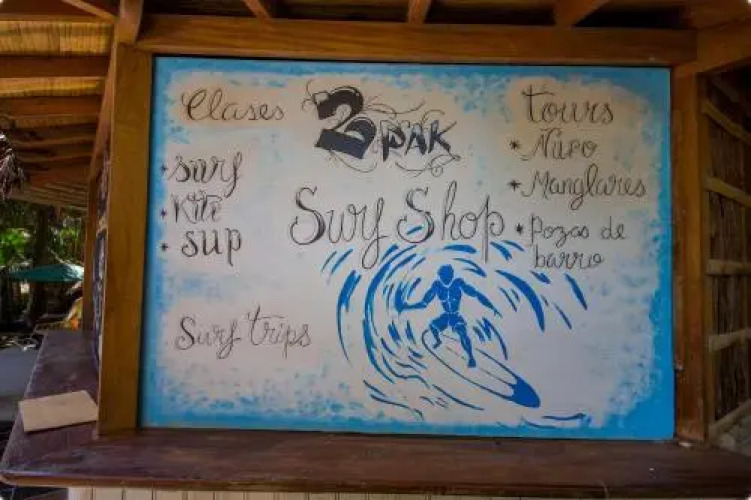 Clases
* surf
* Kite
* sup
Surf trips
2 PAK
Surf Shop
tours
* Ñuro
* Manglares
* Pozas de
barro